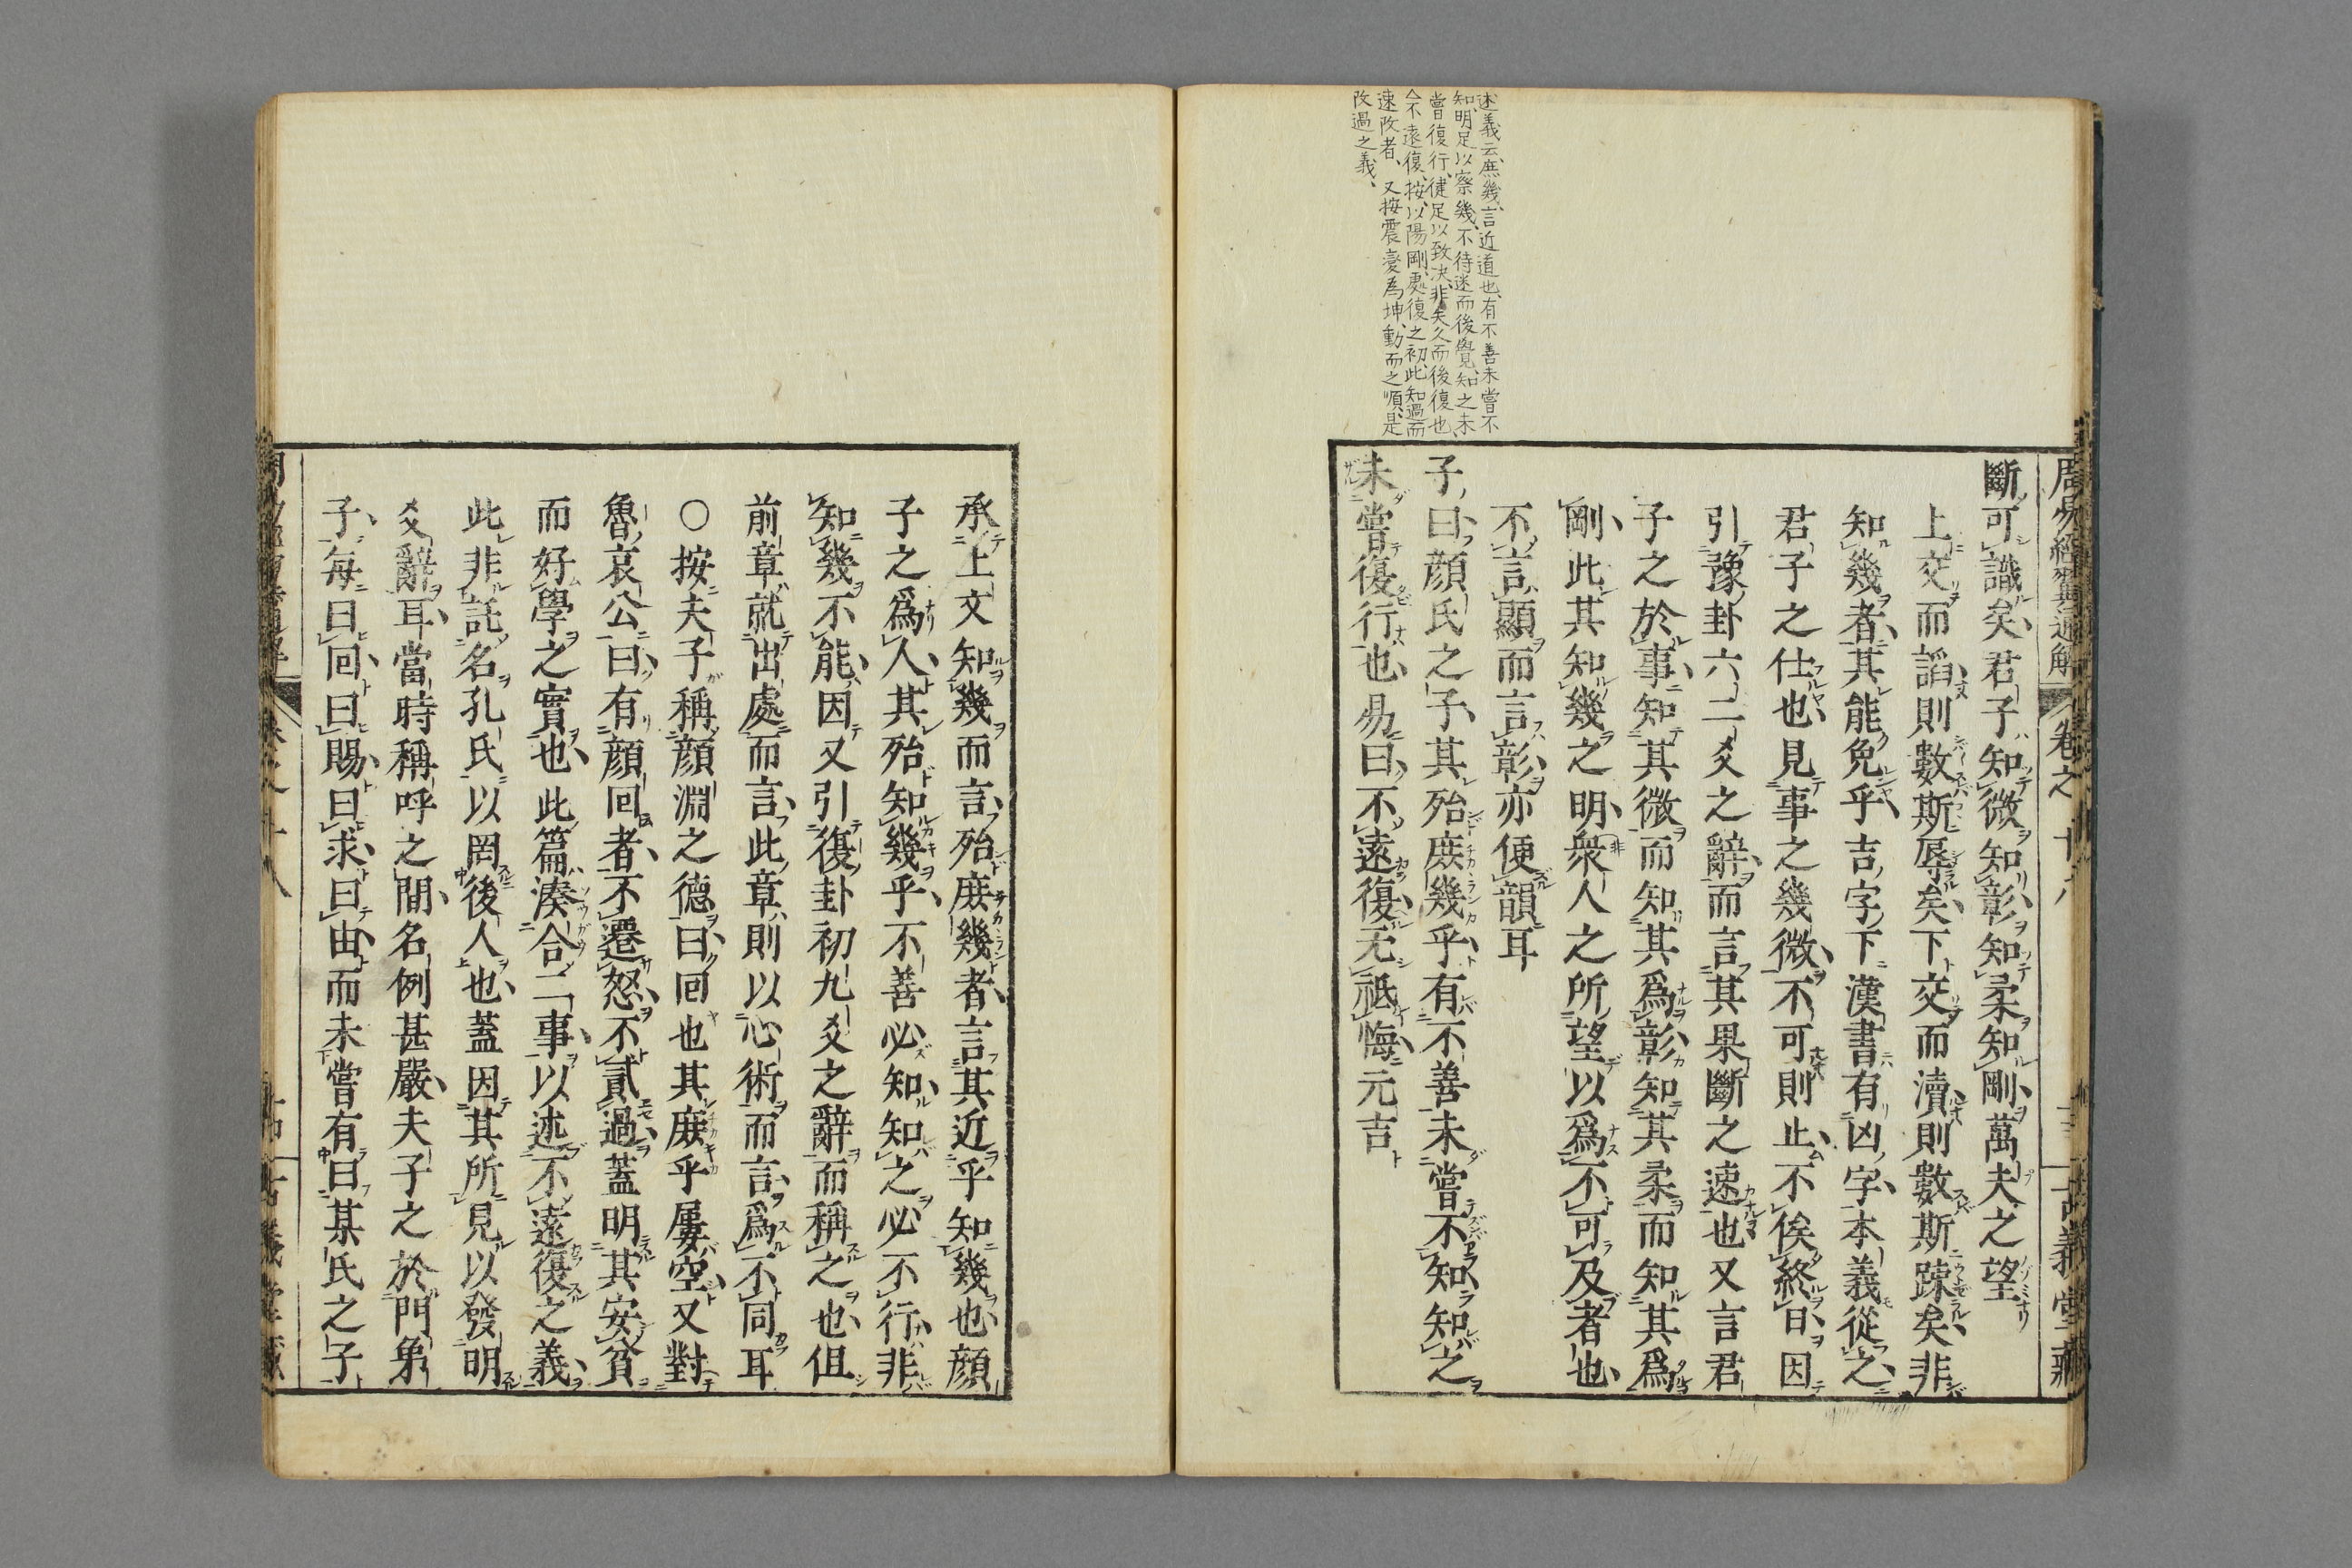 周易經翼通解 卷之十八 古義堂藏
斷可識矣君子知微知彰知柔知剛萬夫之望
上交而謟則數斯辱矣下交而瀆則數斯踈矣非
知幾者其能免乎吉字下漢書有凶字本義從之
君子之仕也見事之幾微不可則止不俟終日因
引豫卦六二爻之辭而言其果斷之速也又言君
子之於事知其微而知其爲彰知其柔而知其爲
剛此其知幾之明衆人之所望以爲不可及者也
不言顯而言彰亦便韻耳
子曰顔氏之子其殆庶幾乎有不善未嘗不知知之
未嘗復行也易曰不遠復无祗悔元吉
述義云庶幾言近道也有不善未嘗不
知明足以察幾不待迷而後覺知之未
嘗復行健足以致决非矣久而後復也
不遠復按以陽剛處復之初此知過而
速改者又按震變為坤動而之順是
改過之義
承上文知幾而言殆庶幾者言其近乎知幾也顔
子之爲人其殆知幾乎不善必知知之必不行非
知幾不能因又引復卦初九爻之辭而稱之也但
前章就出處而言此章則以心術而言爲不同耳
○按夫子稱顔淵之德曰回也其庶乎屢空又對
魯哀公曰有顔回者不遷怒不貳過蓋明其安貧
而好學之實也此篇湊合二事以述不遠復之義
此非託名孔氏以罔後人也蓋因其所見以發明
爻辭耳當時稱呼之間名例甚嚴夫子之於門弟
子每曰回曰賜曰求曰由而未嘗有曰某氏之子